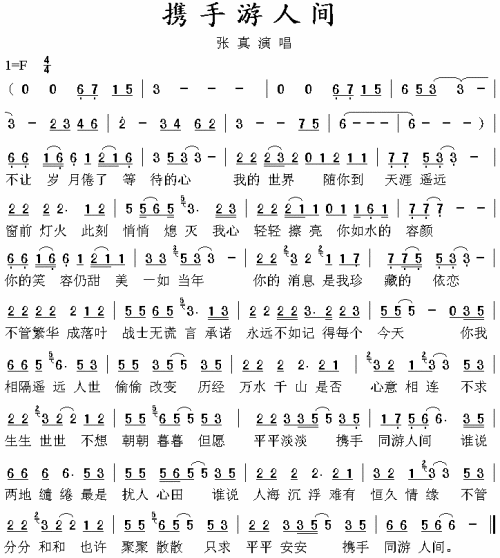 携手游人间
张真演唱
1=F 4/4
(0 0 6 7 1 5 | 3 - - - | 0 0 6 7 1 5 | 6 5 3 3 - |
3 - 2 3 4 6 | 2 - 3 4 6 2 | 3 - - 7 5 | 6 - - - | 6 - - - )|
6 6 1 6 6 1 2 1 6 | 3 5 3 3 - | 2 2 2 3 2 0 1 2 1 2 | 7 5 7 6 6 - |
不让 岁 月倦了 等 待的心 我的 世界 随你到 天涯 遥远
2 2 2 2· 1 2 | 5 5 6 5 5· 3 | 2 2 2 1 1 0 1 1 6 1 | 7 7 7 - - |
窗前 灯火 此刻 悄悄 熄 灭 我心 轻轻 擦 亮 你如水的 容颜
6 6 1 6 6 1 2 1 1 | 3 3 5 3 3 - | 2 2 2 1 2 1 1 1 2 | 7 7 5 5 3 5 - |
你的笑 容仍甜 美 一如 当年 你的 消息 是我珍 藏的 依恋
2 2 2 2 2· 1 2 | 5 5 6 5 5· 1 3 | 2 2 2 2 3· 2 1 2 3 | 5 5 5 - 0 3 5 |
不管繁华 成落叶 战士无谎 言 承诺 永远不如记 得每个 今天 你我
6 6 5 6· 5 3 | 5 5 3 5 5· 3 5 | 2 2 2 2· 2 1 | 3 2 1 2 1 3 |
相隔遥 远 人世 偷偷 改变 历经 万水 千 山 是否 心意 相 连 不求
2 2 3 2 2 1 2 | 5 5 6 5 5 3 5 | 2 2 3 3 5 5 3 5 | 1 7 5 6 6· 3 5 |
生生 世世 不想 朝朝 暮暮 但愿 平平淡淡 携手 同游人间 谁说
6 6 6 5· 5 3 | 5 5 5 6 5 5 3 5 | 2 2 2 2· 1 2 | 3 2 1 2 1 3 |
两地 缱 绻 最是 扰人 心田 谁说 人海 沉 浮 难有 恒久 情 缘 不管
2 2 3 2 2 1 2 | 5 5 6 5 5 3 5 | 2 2 3 3 5 5 3 5 | 6 6 5 6 6· |
分分 和和 也许 聚聚 散散 只求 平平 安安 携手 同游 人间。